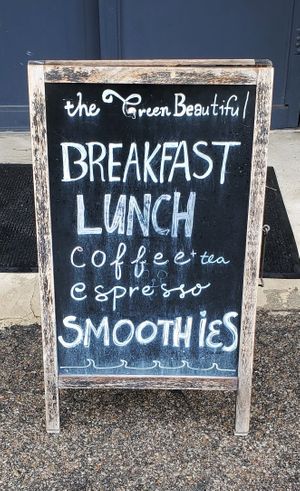 the Green Beautiful
BREAKFAST
LUNCH
coffee + tea
espresso
SMOOTHiES